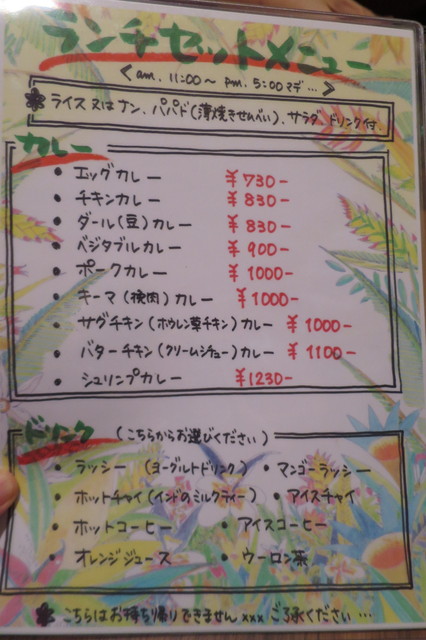 ランチセットメニュー
＜am. 11:00～ pm. 5:00マデ…＞
ライス又はナン、パパド(薄焼きせんべい)、サラダ、ドリンク付.
カレー
• エッグカレー ¥730-
• チキンカレー ¥830-
• ダール(豆)カレー ¥830-
• ベジタブルカレー ¥900-
• ポークカレー ¥1000-
• キーマ(挽肉)カレー ¥1000-
• サグチキン(ホウレン草チキン)カレー ¥1000-
• バターチキン(クリームシチュー)カレー ¥1100-
• シュリンプカレー ¥1230-
ドリンク (こちらからお選びください)
• ラッシー (ヨーグルトドリンク) • マンゴーラッシー
• ホットチャイ(インドのミルクティー) • アイスチャイ
• ホットコーヒー • アイスコーヒー
• オレンジジュース • ウーロン茶
こちらはお持ち帰りできませんxxx ご了承ください…